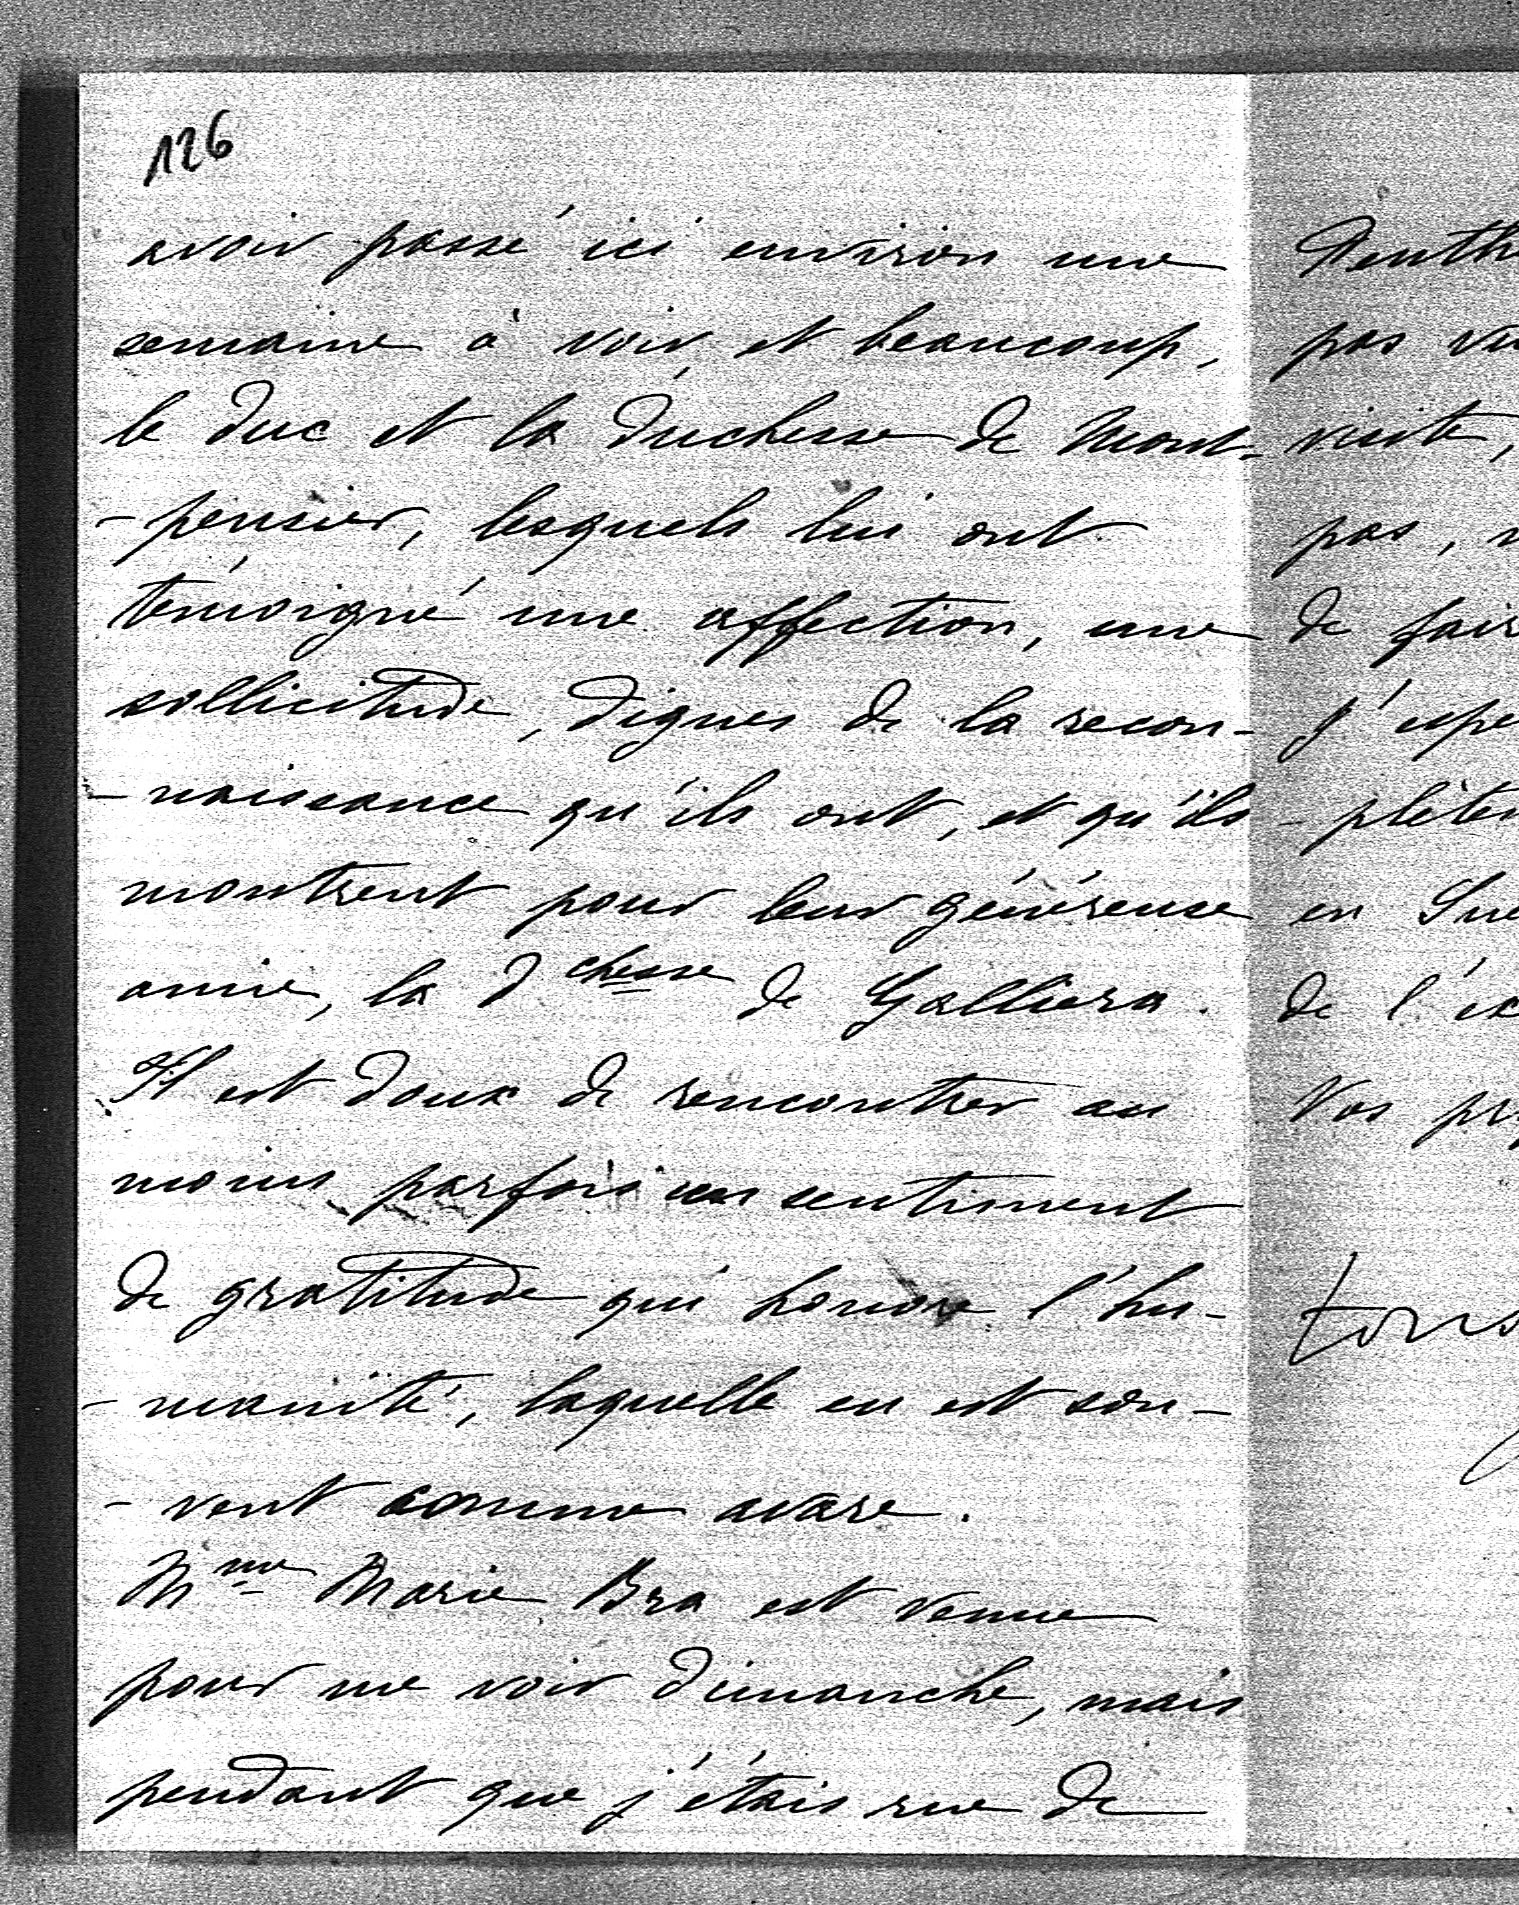 126
avoir passé ici environ une
semaine à voir, et beaucoup,
le duc et la duchesse de Mont-
-pensier, lesquels lui ont
témoigné une affection, une
sollicitude, dignes de la recon-
-naissance qu'ils ont, et qu'ils
montrent pour leur généreuse
amie, la Dchesse de Galliera.
Il est doux de rencontrer au
moins parfois un sentiment
de gratitude qui honore l'hu-
-manité, laquelle en est sou-
-vent comme avare.
Mme Marie Bra est venue
pour me voir dimanche, mais
pendant que j'étais rue de
Penth
pas
visite,
pas,
de fair
J'espé
-plèten
en
de l'ex
Vos